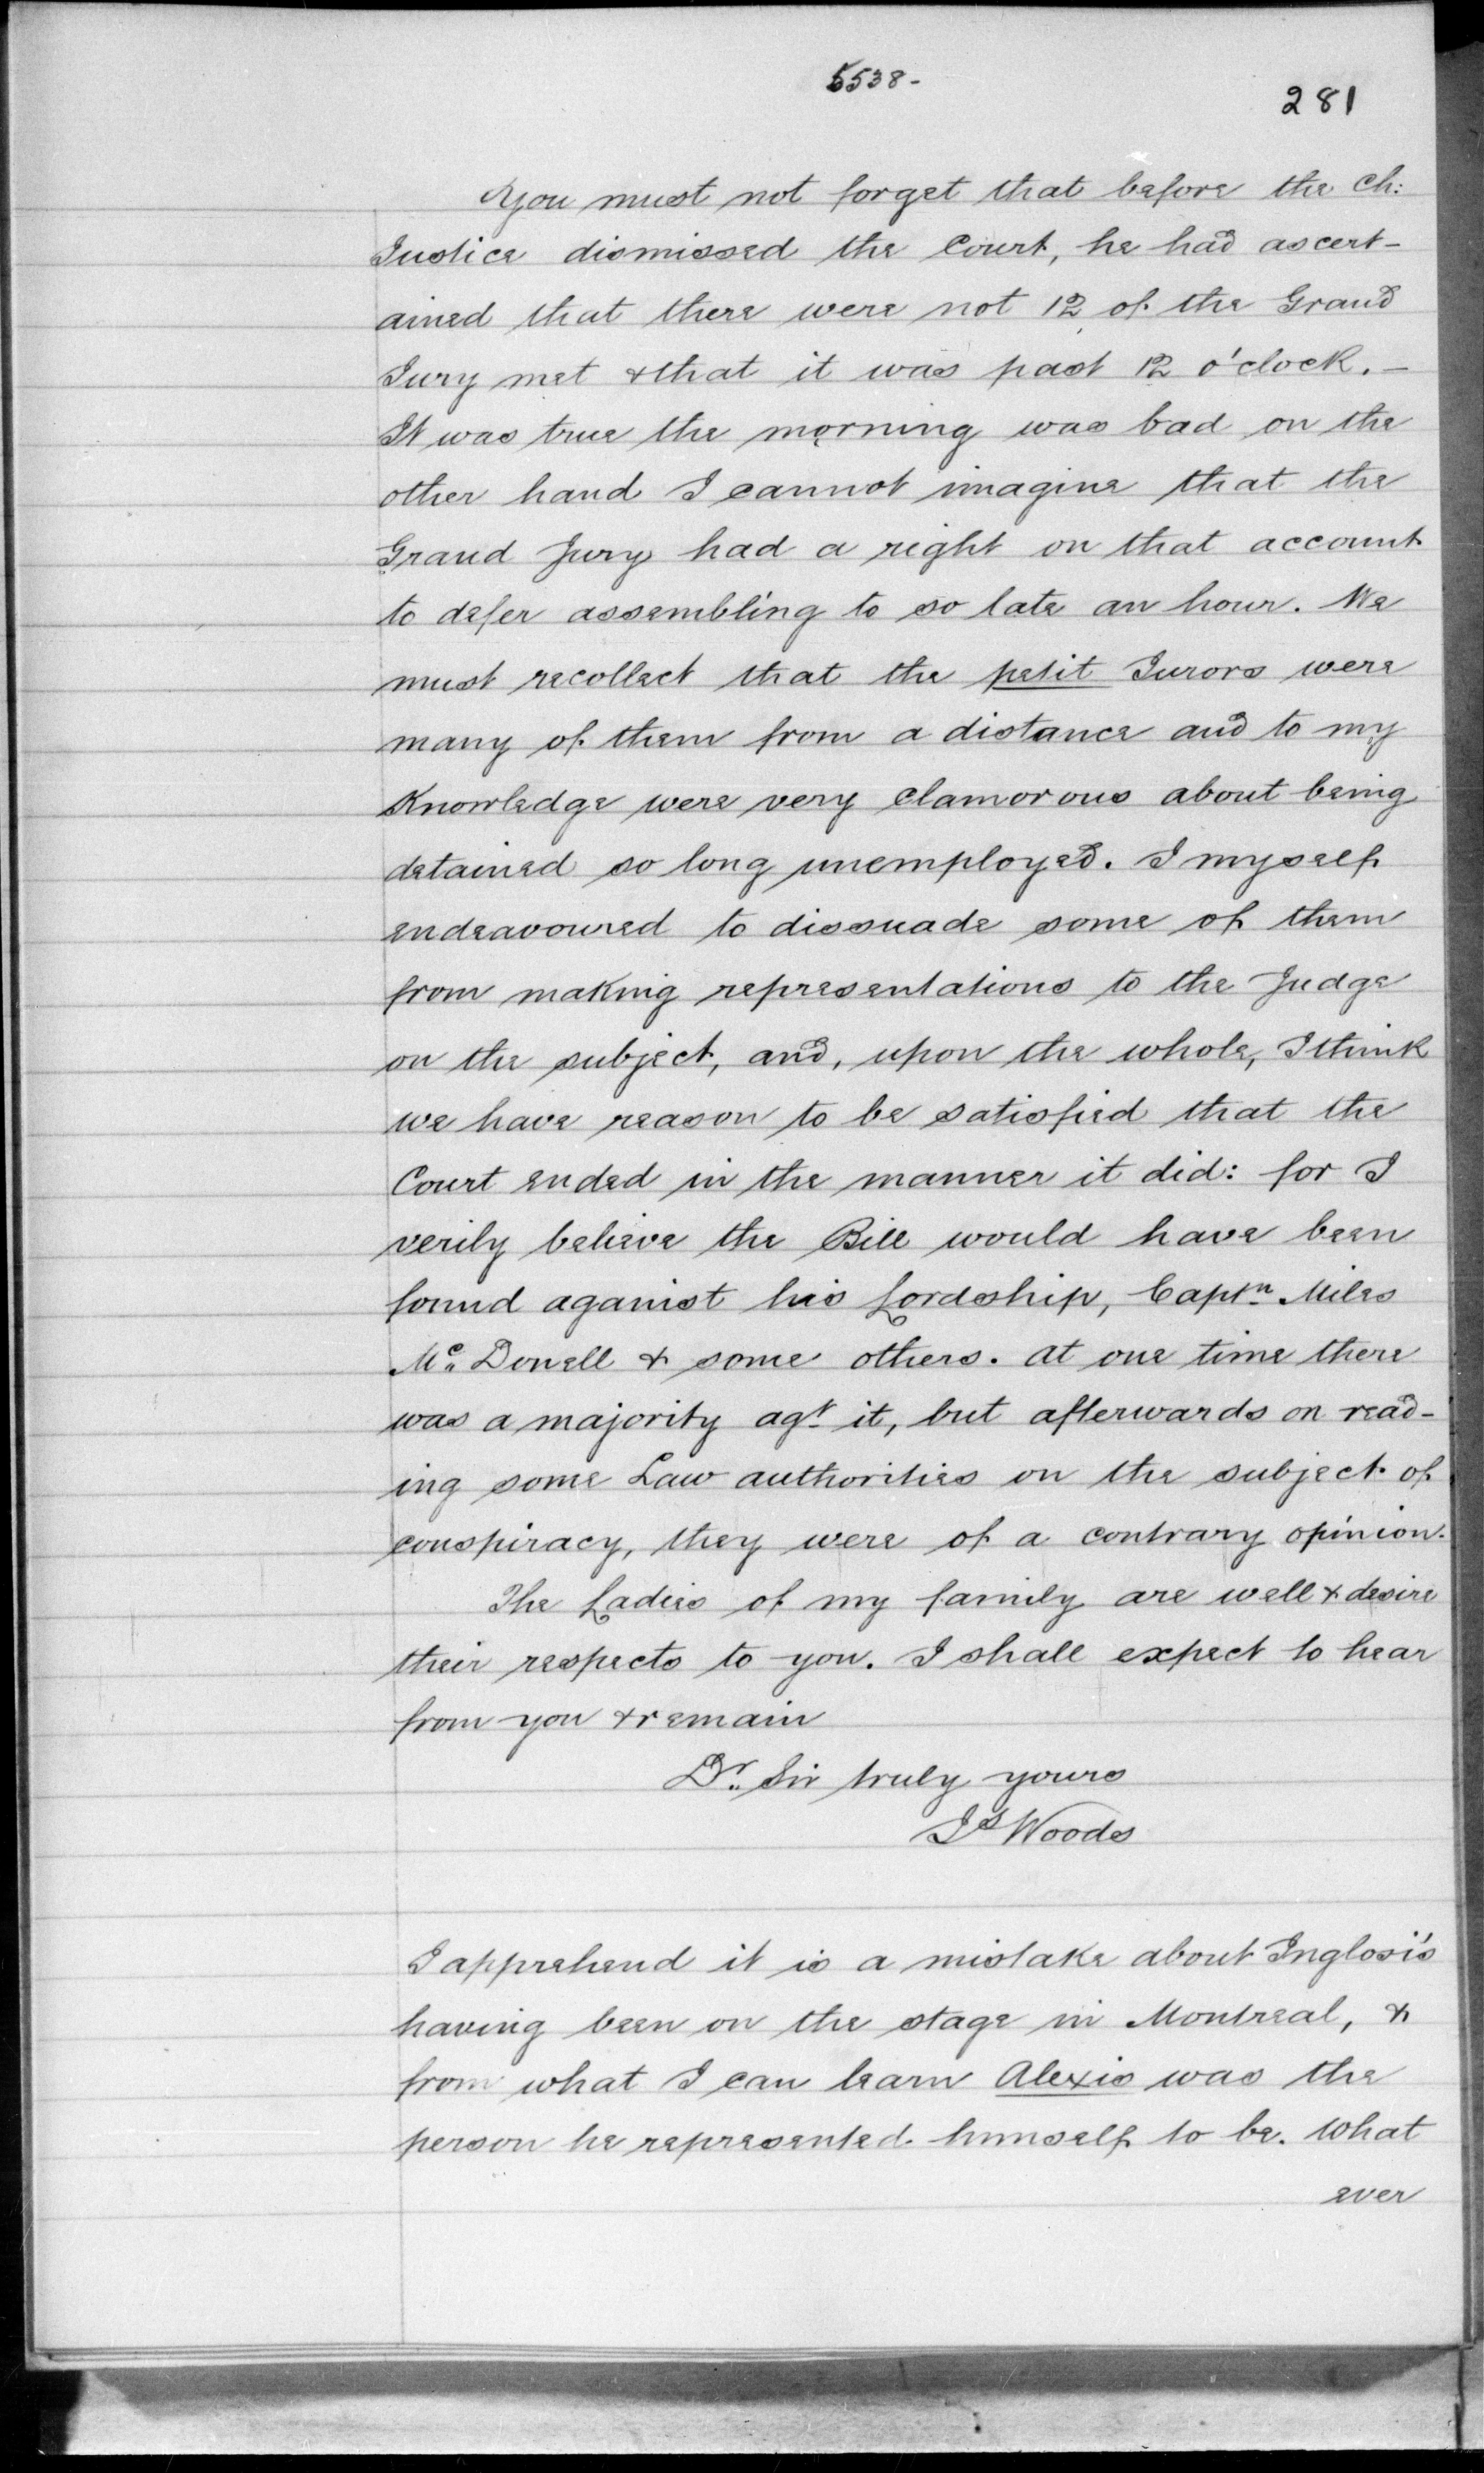 5538-
281
You must not forget that before the Ch:
Justice dismissed the Court, he had ascert-
ained that there were not 12 of the Grand
Jury met & that it was past 12 o'clock. -
It was true the morning was bad on the
other hand I cannot imagine that the
Grand Jury had a right on that account
to defer assembling to so late an hour. We
must recollect that the petit Jurors were
many of them from a distance and to my
Knowledge were very clamorous about being
detained so long unemployed. I myself
endeavoured to dissuade some of them
from making representations to the Judge
on the subject, and, upon the whole, I think
we have reason to be satisfied that the
Court ended in the manner it did: for I
verily believe the Bill would have been
found against his Lordship, Captn. Miles
Mc. Donell & some others. At one time there
was a majority agt. it, but afterwards on read-
ing some Law authorities on the subject of
conspiracy, they were of a contrary opinion.
The Ladies of my family are well & desire
their respects to you. I shall expect to hear
from you & remain
Dr. Sir truly yours
Js Woods
I apprehend it is a mistake about Inglosi's
having been on the stage in Montreal, &
from what I can learn Alexis was the
person he represented himself to be. What
ever